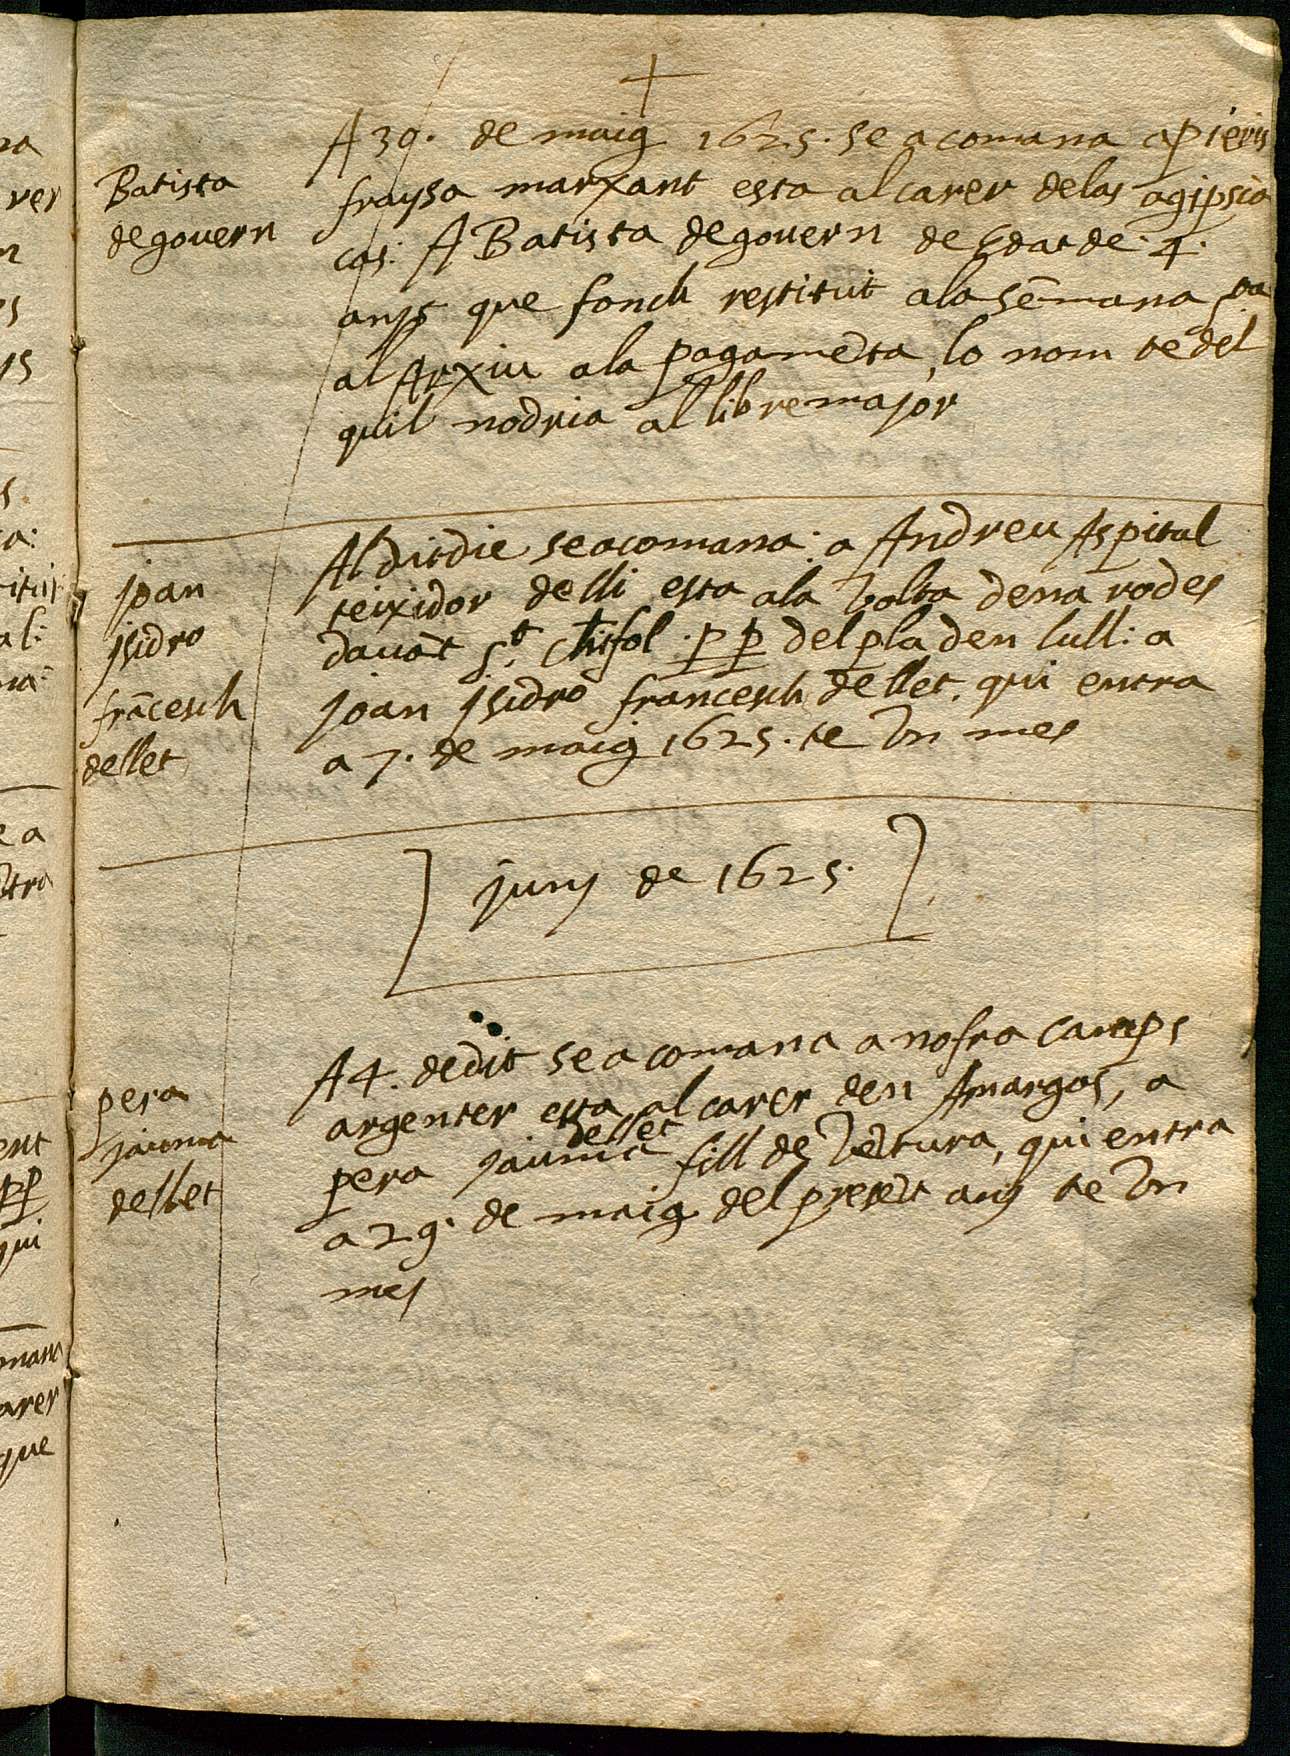 A 30. de maig 1625. se acomana a pieris
Batista
degovern
fraysa marxant esta al carer de las agipsia
cas: A Batista degovern de Edat de 4.
anys que fonch restitut a la semana sta
al Arxiu a la pagameta, lo nom te del
quil nodria al libre major
joan
jsidro
francesch
dellet
Al dit die se acomana: a Andreu Aspital
teixidor de lli esta a la volta dena rodes
davat St. Chifol. pp del pla den lull: a
joan jsidro francesch dellet. qui entra
a 7. de maig 1625. te vn mes
juny de 1625.
pera
jauma
dellet
A 4. de dit se acomana a nofra camps
argenter esta al carer den Amargos, a
pera jauma dellet fill de Vetura, qui entra
a 29. de maig del preset any te vn
mes
ver
ea
ent
pp
qui
arer
que